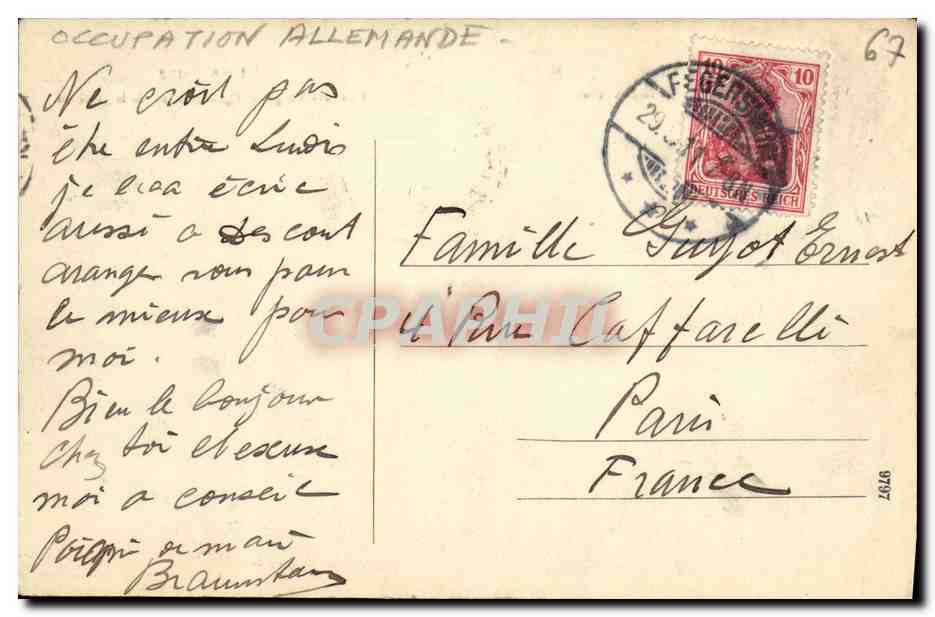 OCCUPATION ALLEMANDE -
67
Ne croit pas
être entre Lundi
je écrie
aussi a Descont
aranger vous pour
le mieux pour
moi.
Bien le bonjour
chez toi et excuse
moi a conseil
de main
10 10
DEUTSCHES REICH
FEGERSHEIM
29.
Famille Guyot Ernest
4 Rue Caffarelli
Paris
France
9797
CPAPHIL